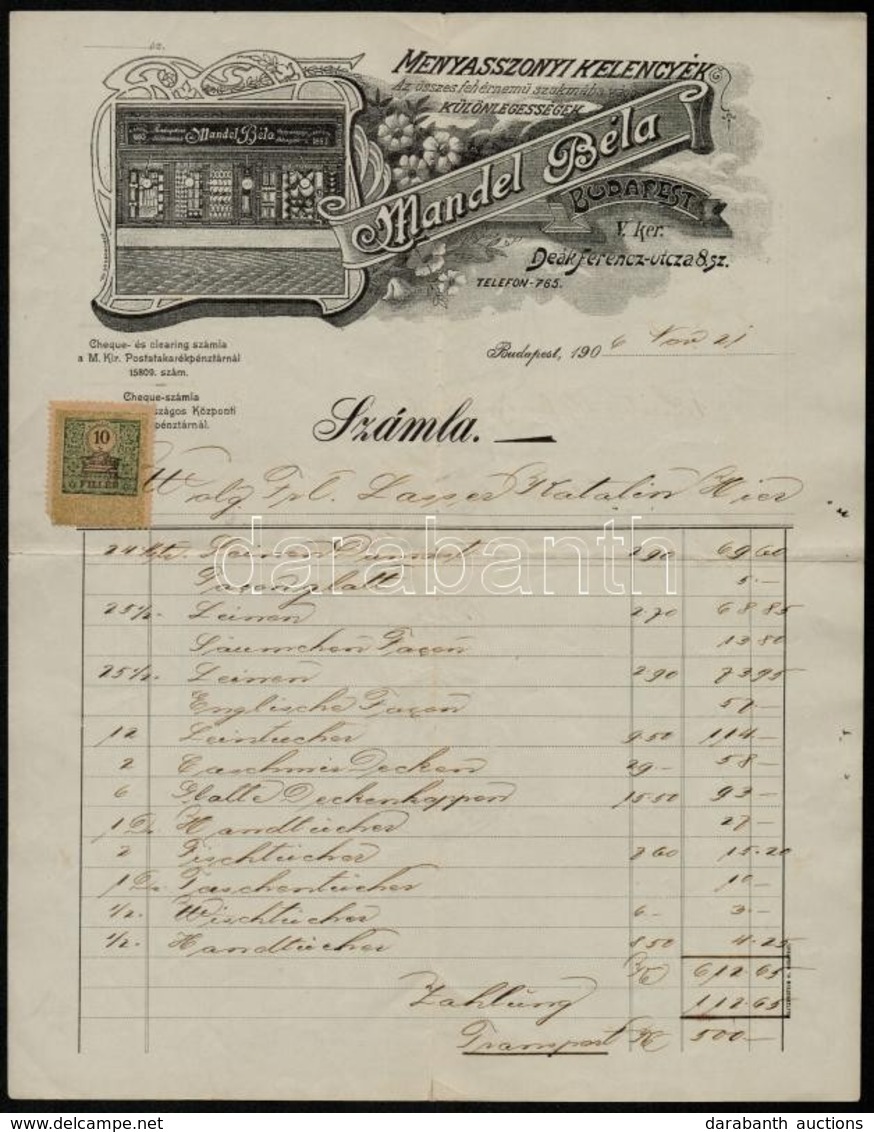 MENYASSZONYI KELENGYÉK
Az összes fehérnemű szakmába
KÜLÖNLEGESSÉGEK
Mandel Béla
Mandel Béla
BUDAPEST
V. ker.
Deák Ferencz-utcza 8. sz.
TELEFON-765.
Cheque- és clearing számla
a M. Kir. Postatakarékpénztárnál
15809. szám.
Cheque-számla
szágos Központi
pénztárnál.
Budapest, 1906 Nov 21
Számla.
10
FILLÉR
Frl. Lasser Katalin Hier
2.90 69 60
Façon glatt 5.—
25 1/2. Leinen 2.70 68.85
Säumchen Façon 13 80
25 1/2. Leinen 2.90 73 95
Englische Façon
12 Leintücher 9.50 114—
2 Caschmir Decken 29— 58—
6 Glatte Deckenkappen 15.50 93—
1 Dz. Handtücher 27—
2 Tischtücher 7.60 15.20
1 Dz. Taschentücher 10—
1/2. Wischtücher 6— 3.—
1/2. Handtücher 8.50 4.25
K 612.65
Zahlung 112.65
Transport K 500—
darabanth
darabanth auctions